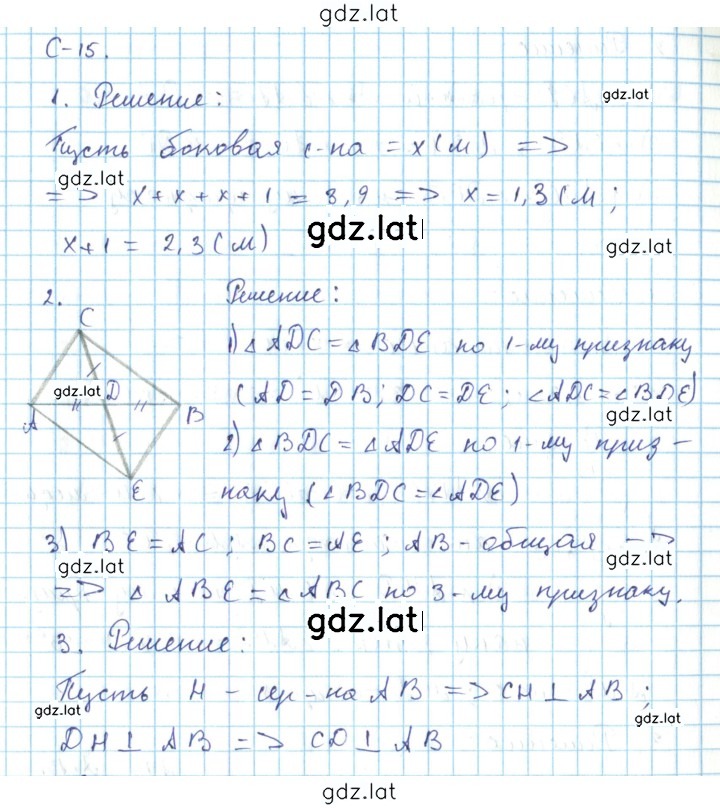 gdz.lat
С-15.
1. Решение:
gdz.lat
Пусть боковая с-на = x(м) =>
gdz.lat
=> x + x + x + 1 = 8,9 => x = 1,3(м;
gdz.lat
gdz.lat
x+1 = 2,3(м)
2. Решение:
C
1) ▵ ADC = ▵ BDE по 1-му признаку
gdz.lat D
(AD = DB; DC = DE; ∠ADC = ∠BDE)
gdz.lat
A B
2) ▵ BDC = ▵ ADE по 1-му приз-
E
наку (∠BDC = ∠ADE)
3) BE = AC; BC = AE; AB - общая =>
gdz.lat
gdz.lat
=> ▵ ABE = ▵ ABC по 3-му признаку.
gdz.lat
3. Решение:
Пусть H - сер-на AB => CH ⊥ AB;
gdz.lat
gdz.lat
DH ⊥ AB => CD ⊥ AB
gdz.lat